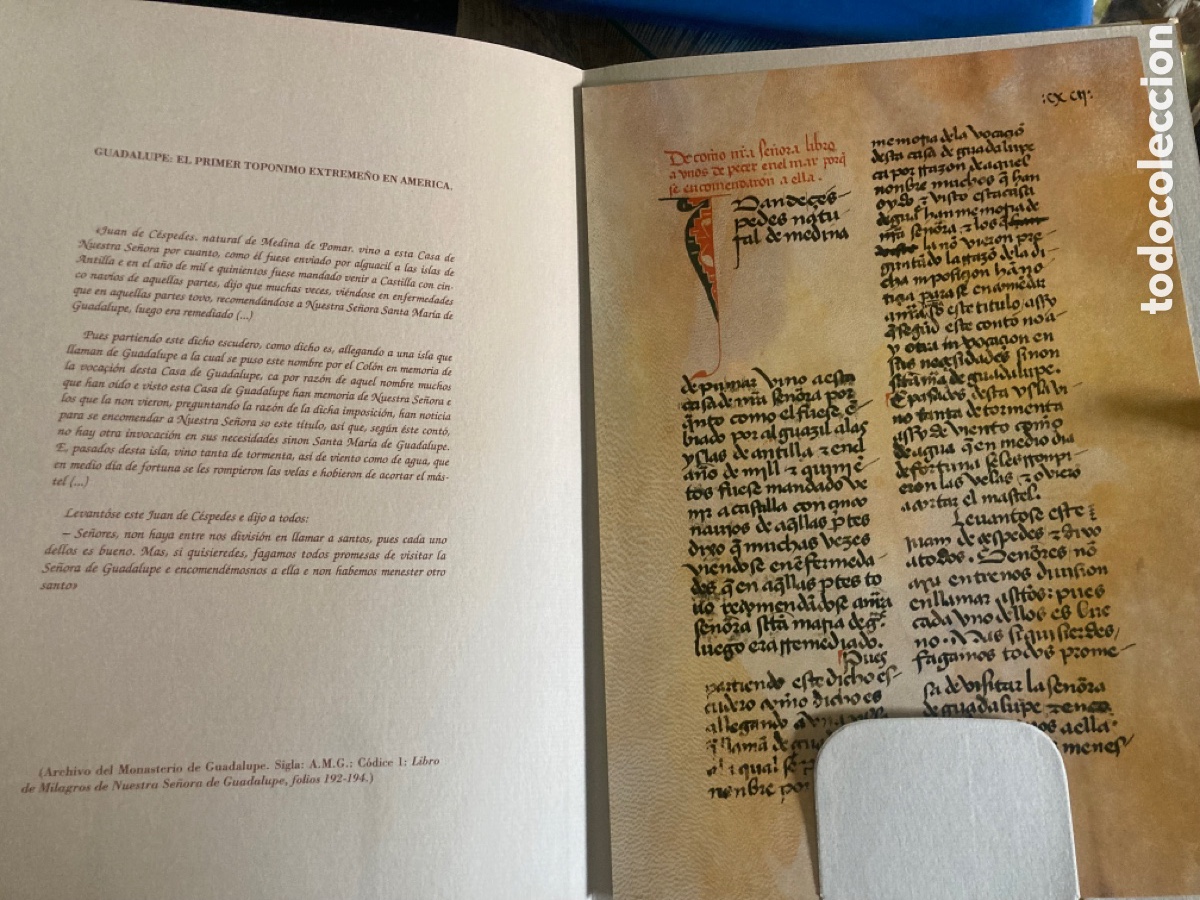 GUADALUPE: EL PRIMER TOPONIMO EXTREMEÑO EN AMERICA.
«Juan de Céspedes, natural de Medina de Pomar, vino a esta Casa de
Nuestra Señora por cuanto, como él fuese enviado por alguacil a las islas de
Antilla e en el año de mil e quinientos fuese mandado venir a Castilla con cin-
co navíos de aquellas partes, dijo que muchas veces, viéndose en enfermedades
que en aquellas partes tovo, recomendándose a Nuestra Señora Santa María de
Guadalupe, luego era remediado (...)
Pues partiendo este dicho escudero, como dicho es, allegando a una isla que
llaman de Guadalupe a la cual se puso este nombre por el Colón en memoria de
la vocación desta Casa de Guadalupe, ca por razón de aquel nombre muchos
que han oído e visto esta Casa de Guadalupe han memoria de Nuestra Señora e
los que la non vieron, preguntando la razón de la dicha imposición, han noticia
para se encomendar a Nuestra Señora so este título, así que, según éste contó,
no hay otra invocación en sus necesidades sinon Santa María de Guadalupe.
E, pasados desta isla, vino tanta de tormenta, así de viento como de agua, que
en medio día de fortuna se les rompieron las velas e hobieron de acortar el más-
tel (...)
Levantóse este Juan de Céspedes e dijo a todos:
– Señores, non haya entre nos división en llamar a santos, pues cada uno
dellos es bueno. Mas, si quisieredes, fagamos todos promesas de visitar la
Señora de Guadalupe e encomendémosnos a ella e non habemos menester otro
santo»
(Archivo del Monasterio de Guadalupe. Sigla: A.M.G.: Códice 1: Libro
de Milagros de Nuestra Señora de Guadalupe, folios 192-194.)
:cxcij:
De como nr̃a señora libro
a vnos de peçer en el mar porq̃
se encomendaron a ella.
Juan de çes-
pedes natu-
ral de medina
de pumar vino a esta
casa de nr̃a señora por
q̃nto como el fuese ẽ-
biado por alguazil a las
yslas de antilla & en el
año de mill & quinie-
tos fuese mandado ve-
nir a castilla con çinco
nauios de aq̃llas ptes
dixo q̃ muchas vezes
viendose en ẽfermeda-
des q̃ en aq̃llas ptes to-
uo recomendãdose a nr̃a
señora sctã maria de g.
luego era rremediado.
Pues
partiendo este dicho es-
cudero como dicho es
allegando a vna
llamã de gua
el qual se p
nonbre por
memoria de la vocaçiõ
desta casa de guadalupe
ca por rrazon de aquel
nonbre muchos q̃ han
oydo & visto esta casa
de gual han memoria de
nr̃a señora & los q̃
la nõ vieron pre-
guntãdo la rrazõ de la di-
cha inposiçion hã no-
tiçia para se encomẽdar
a nr̃a sõ este titulo assy
q̃ segũd este conto no a-
y otra invocaçion en
sus neçesidades sinon
sctã mã de guadalupe.
E pasados desta ysla vi-
no tanta de tormenta
assy de viento como
de agua q̃ en medio dia
de fortuna se les rronpi-
eron las velas & ouierõ
a cortar el mastel.
Leuantose este
juam de çespedes & dixo
a todos. Señores nõ
aya entre nos diuision
en llamar a sctõs: pues
cada vno dellos es bue
no. Mas si quisierdes,
fagamos todos prome-
sa de visitar la señora
de guadalupe & enco
nos a ella
menes-
todocoleccion